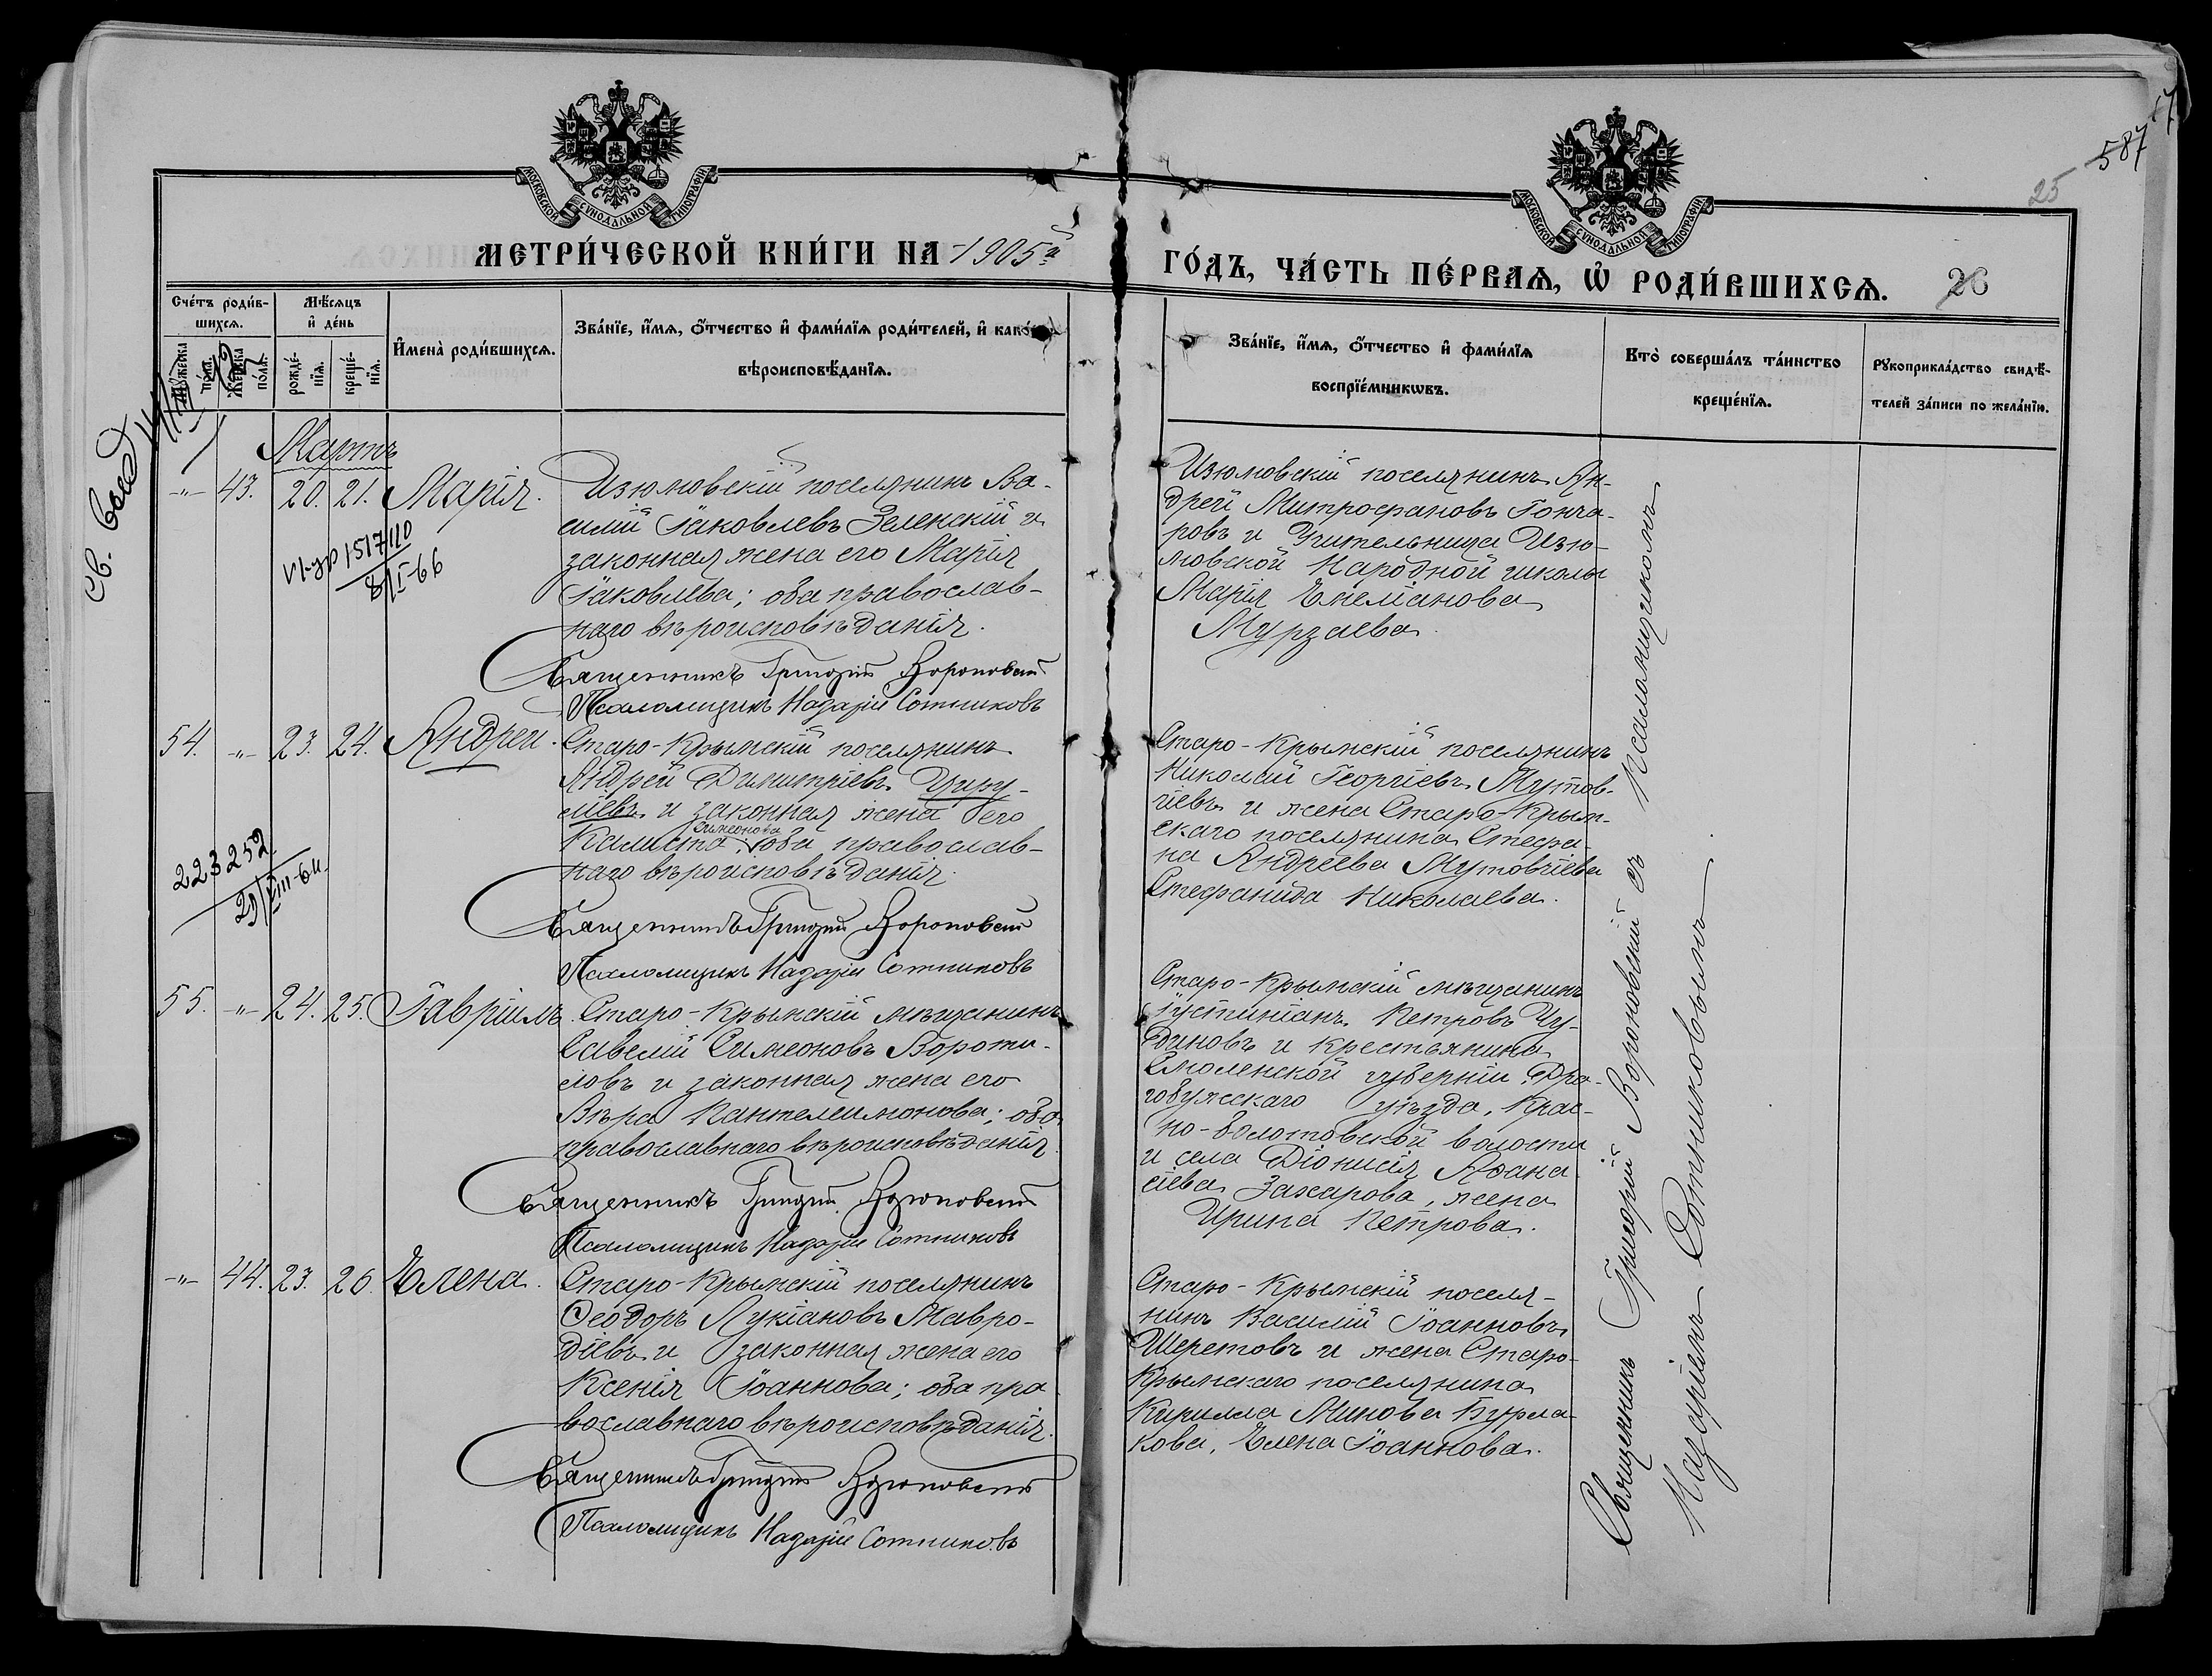 587
25
МОСКОВСКОЙ СѴНОДАЛЬНОЙ ТИПОГРАФІИ
МОСКОВСКОЙ СѴНОДАЛЬНОЙ ТИПОГРАФІИ
МЕТРИ́ЧЕСКОЙ КНИ́ГИ НА 1905й
ГО́ДЪ, ЧА́СТЬ ПЕ́РВАЯ, Ѽ РОДИ́ВШИХСЯ.
26
Сче́тъ роди́в-
шихся.
Мѣ́сяцъ
и҆ де́нь
Му́жеска
по́ла.
Же́нска
по́ла.
рожде́-
нїя.
креще́-
нїя.
И҆мена̀ роди́вшихся.
Зва́нїе, и҆́мя, ѻ҆́тчество и҆ фами́лїя роди́телей, и҆ како́
вѣроисповѣ́данїя.
Зва́нїе, и҆́мя, ѻ҆́тчество и҆ фами́лїя
воспрїе́мникѡвъ.
Кто̀ соверша́лъ та́инство
креще́нїя.
Рꙋкоприкла́дство свидѣ́-
телей за́писи по жела́нїю.
Св. выд
Мартъ
-"- 43. 20. 21. Марія.
Изюмовскій поселянинъ Ва-
силій Іаковлевъ Зеленскій и
законная жена его Марія
Іаковлева; оба православ-
наго вѣроисповѣданія.
Священникъ Григорій Вороновскій
Псаломщикъ Назарій Сотниковъ
VI-ЯР 1517110
8/I-66
Изюмовскій поселянинъ Ан-
дрей Митрофановъ Гонча-
ровъ и Учительница Изю-
мовской Народной школы
Марія Емеліанова
Мурзаева.
54. -"- 23. 24. Андрей.
Старо-Крымскій поселянинъ
Андрей Димитріевъ Циру-
ліевъ и законная жена его
Калиста Симеонова, оба православ-
наго вѣроисповѣданія.
Священникъ Григорій Вороновскій
Псаломщикъ Назарій Сотниковъ
223252
29/VIII-64.
Старо-Крымскій поселянинъ
Николай Георгіевъ Мутов-
гіевъ и жена Старо-Крым-
скаго поселянина Стефа-
на Андреева Мутовгіева
Стефанида Николаева.
55. -"- 24. 25. Гавріилъ.
Старо-Крымскій мѣщанинъ
Савелій Симеоновъ Вороти-
ловъ и законная жена его
Вѣра Пантелеимонова; оба
православнаго вѣроисповѣданія.
Священникъ Григорій Вороновскій
Псаломщикъ Назарій Сотниковъ
Старо-Крымскій мѣщанинъ
Іустиніанъ Петровъ Чу-
диновъ и крестьянина
Смоленской губерніи, Дро-
гобужскаго уѣзда, Крас-
но-болотовской волости
и села Діонисія Аѳана-
сіева Захарова, жена
Ирина Петрова.
-"- 44. 23. 26. Елена.
Старо-Крымскій поселянинъ
Ѳеодоръ Лукіановъ Мавро-
діевъ и законная жена его
Ксенія Іоаннова; оба пра-
вославнаго вѣроисповѣданія.
Священникъ Григорій Вороновскій
Псаломщикъ Назарій Сотниковъ
Старо-Крымскій поселя-
нинъ Василій Іоанновъ
Шеретовъ и жена Старо-
Крымскаго поселянина
Кирилла Минова Бурла-
кова, Елена Іоаннова.
Священникъ Григорій Вороновскій съ Псаломщикомъ
Назаріемъ Сотниковымъ